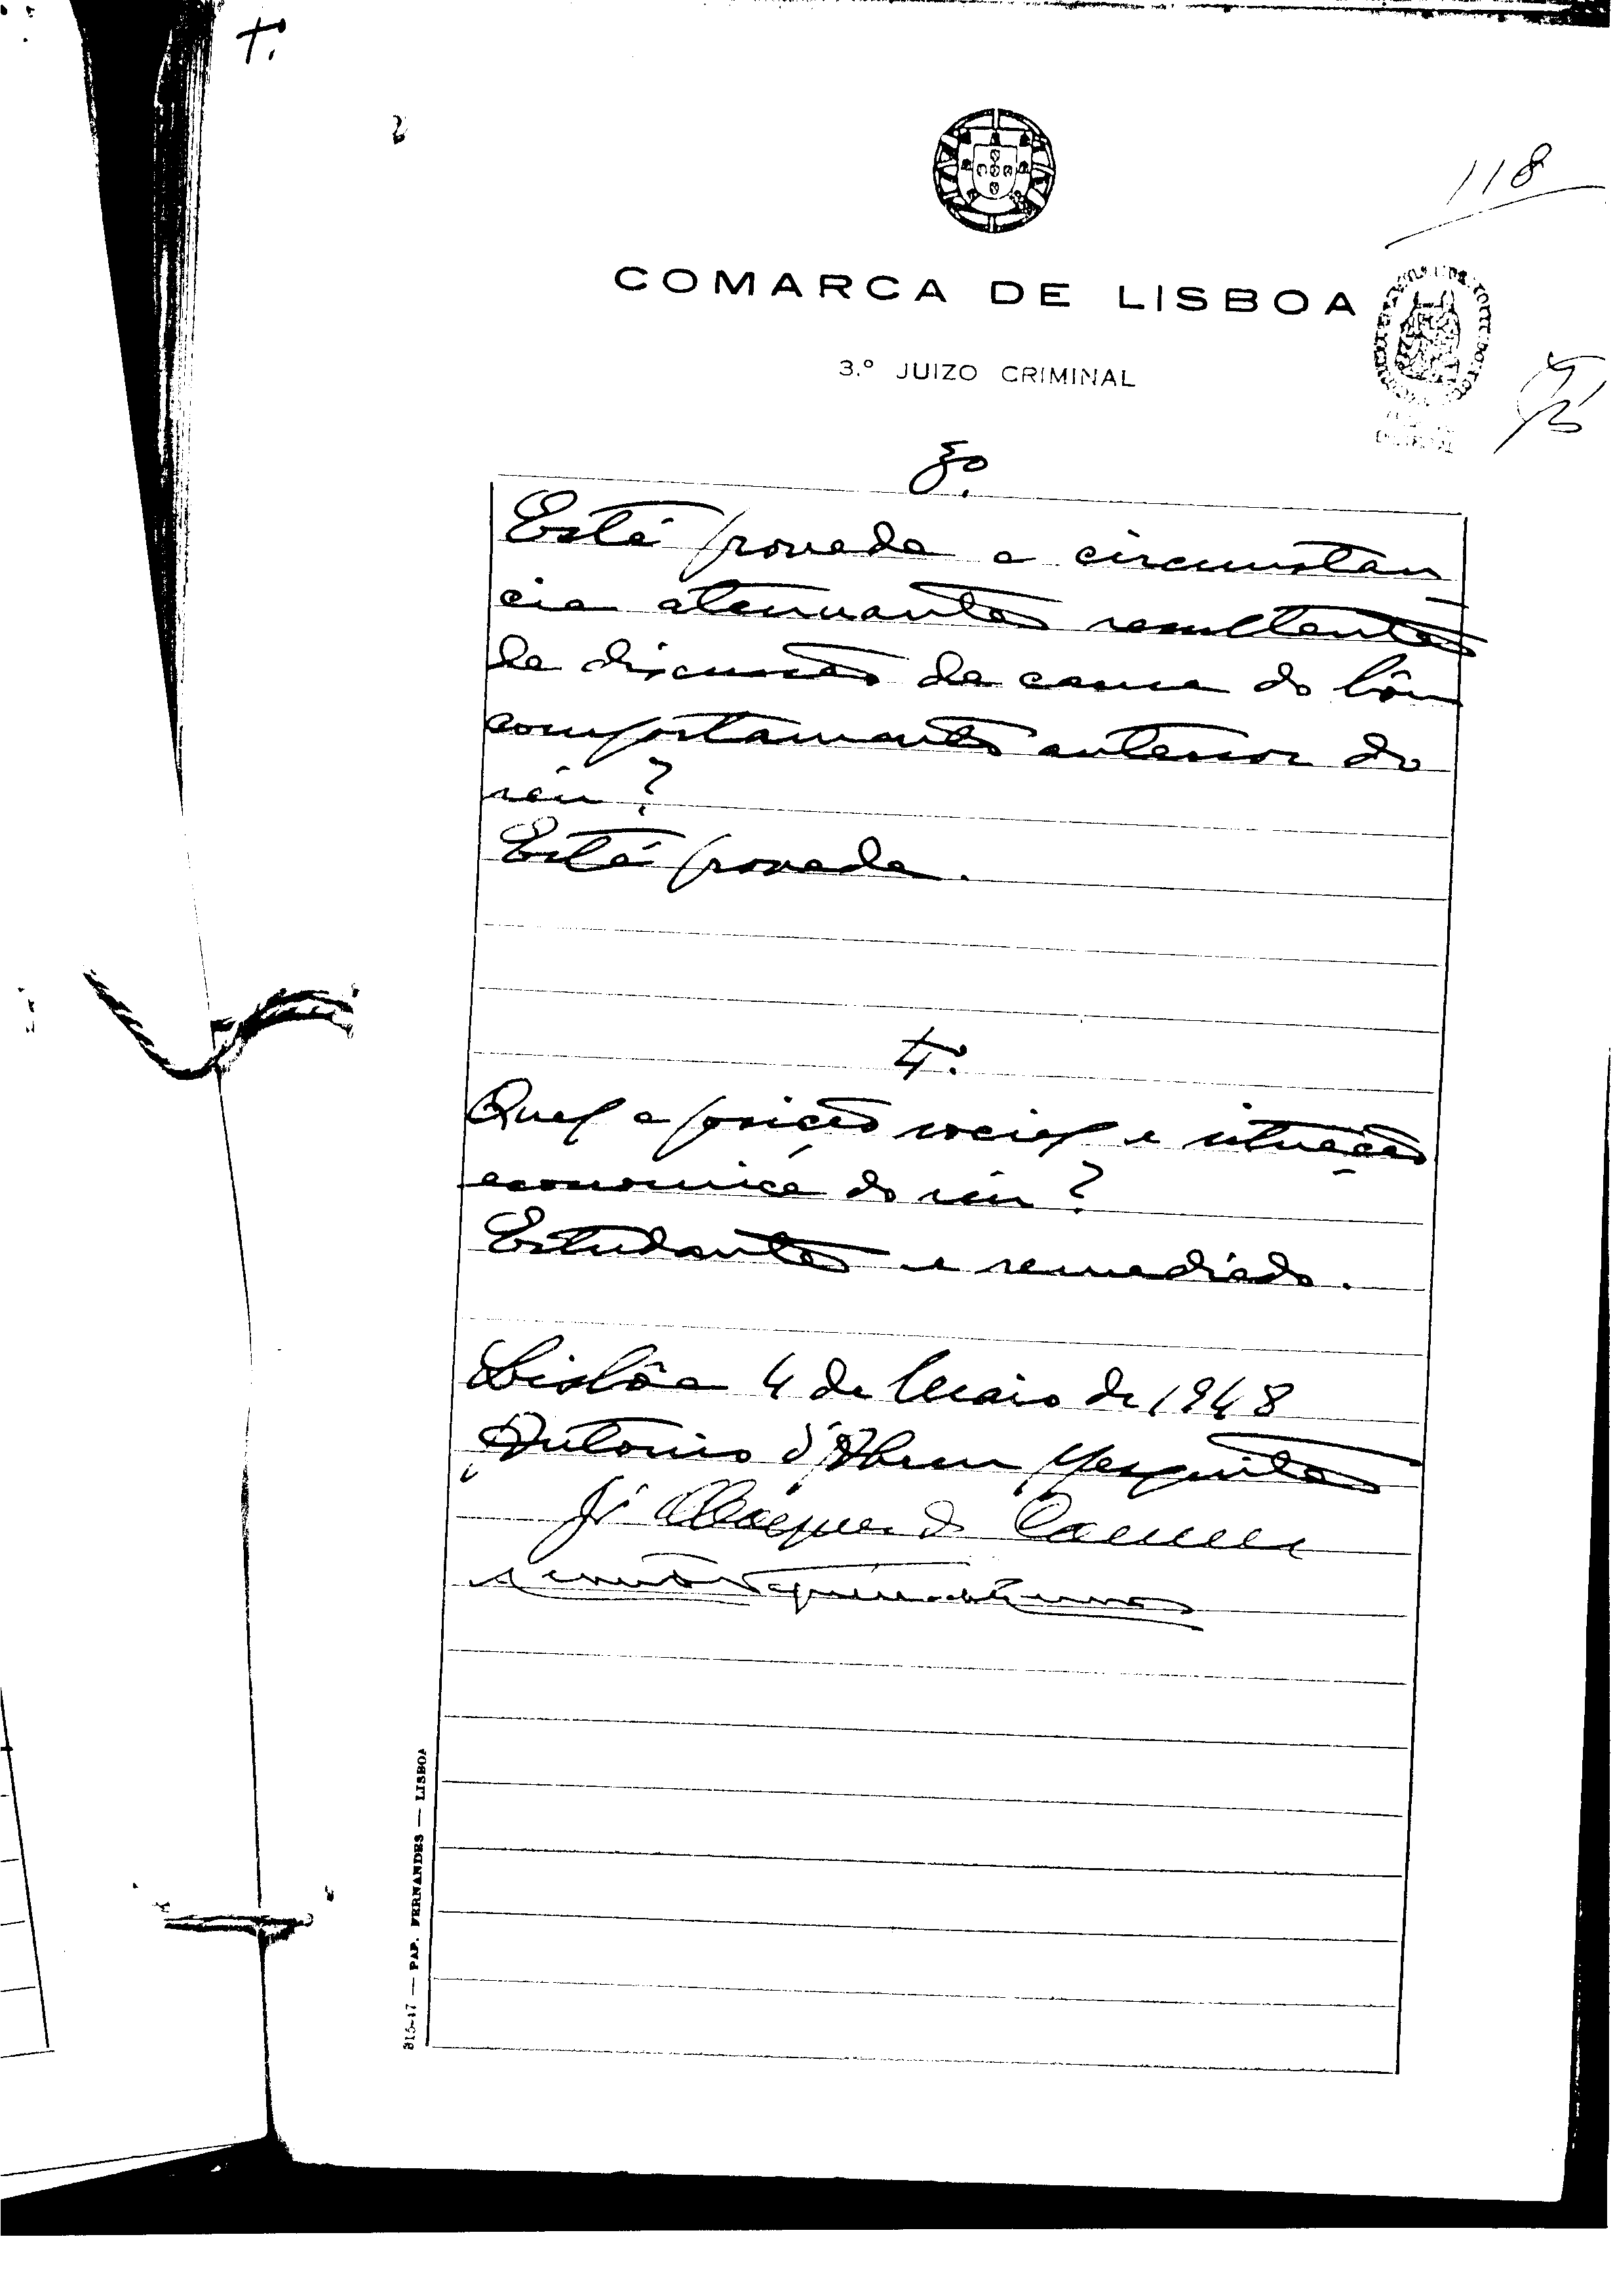 118
COMARCA DE LISBOA
3.º JUIZO CRIMINAL
3º.
Está provada a circunstan
cia atenuante resultante
da discussão da causa do bôm
comportamento anterior do
réu?
Está provada.
4º.
Qual a posição social e situação
economica do réu?
Estudante e remediado.
Lisbôa 4 de Maio de 1948
António d'Abreu Mesquita
315-47 — PAP. FERNANDES — LISBOA